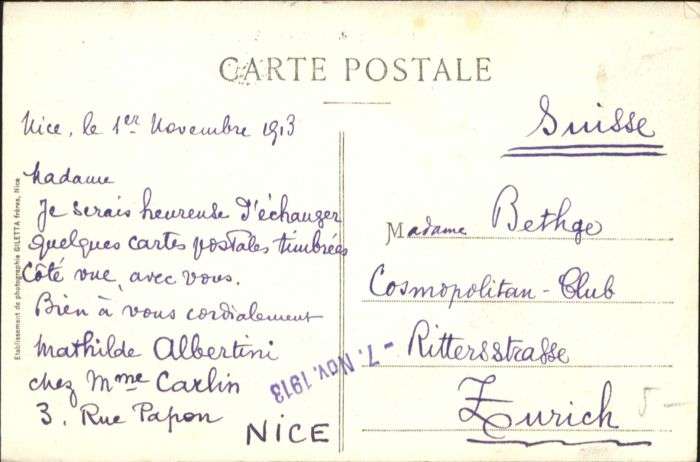 CARTE POSTALE
Nice, le 1er Novembre 1913
Madame
Je serais heureuse d'échanger
quelques cartes postales timbrées
côté vue, avec vous.
Bien à vous cordialement
Mathilde Albertini
chez Mme Carlin
3. Rue Papon
NICE
- 7. Nov. 1913
Etablissement de photographie GILETTA frères, Nice
Suisse
Madame Bethge
Cosmopolitan-Club
Rittersstrasse
Zurich
5-